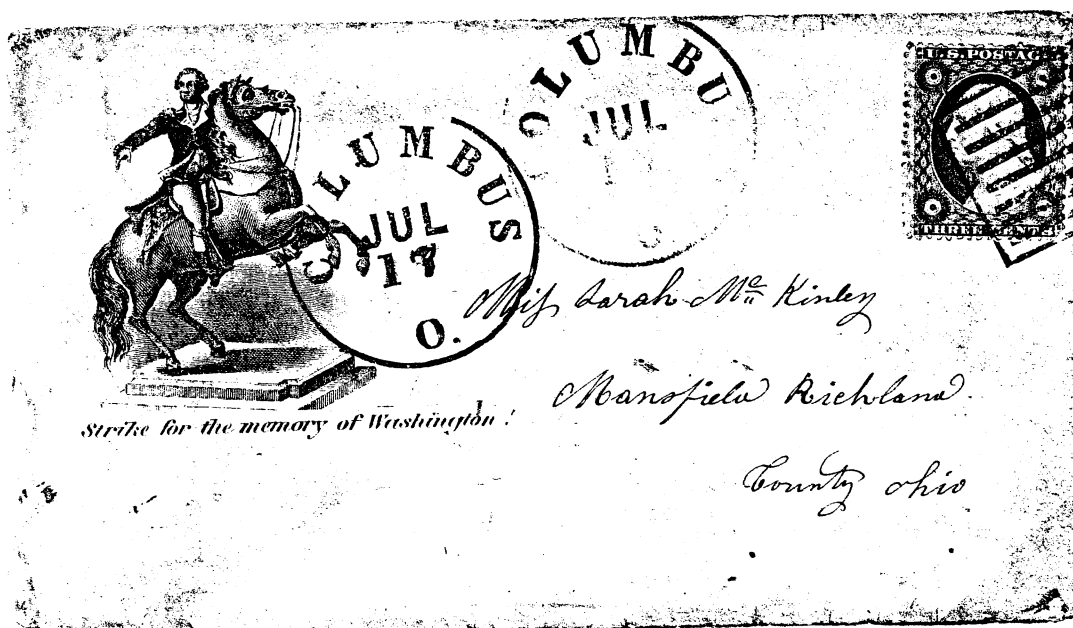 COLUMBUS
JUL
17
O.
OLUMBU
JUL
U.S. POSTAG
THREE CENTS
Strike for the memory of Washington!
Miss Sarah Mc Kinley
Mansfield Richland
County Ohio